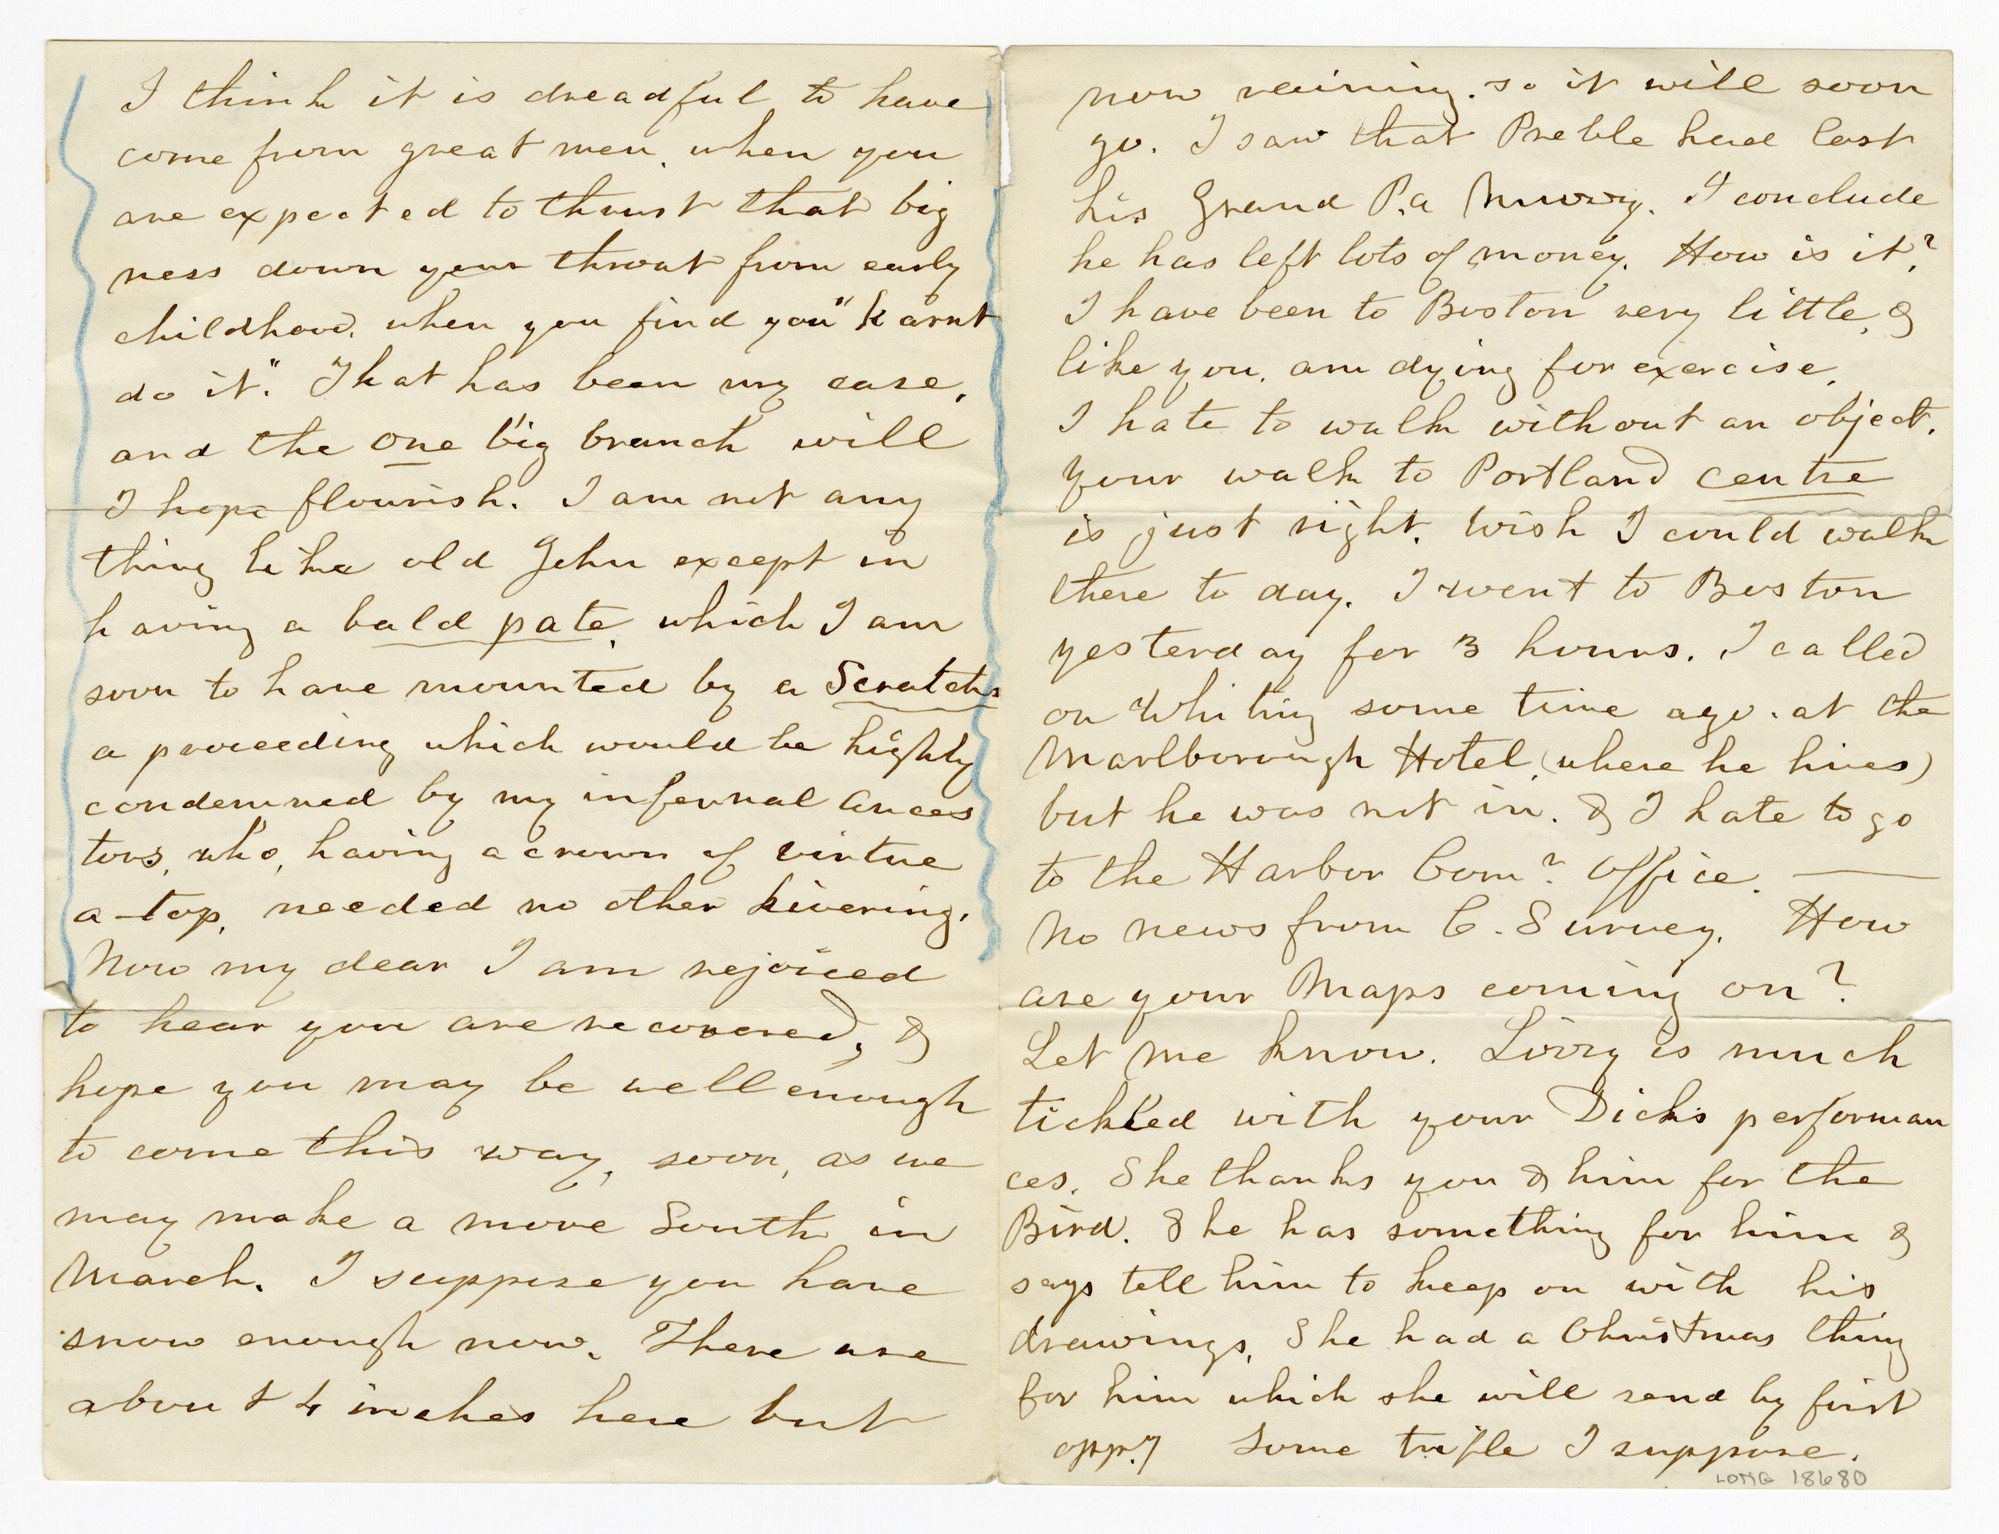 I think it is dreadful to have
come from great men, when you
are expected to thrust that big
ness down your throat from early
childhood, when you find you "karnt
do it". That has been my case,
and the one big branch will
I hope flourish. I am not any
thing like old John except in
having a bald pate, which I am
soon to have mounted by a Scratch,
a proceeding which would be highly
condemned by my infernal ances
tors, who, having a crown of virtue
a-top, needed no other kivering.
Now my dear I am rejoiced
to hear you are recovered, &
hope you may be well enough
to come this way, soon, as we
may make a move South in
March. I suppose you have
snow enough now. There are
about 4 inches here but
now raining. so it will soon
go. I saw that Preble had lost
his Grand P.a. I conclude
he has left lots of money. How is it?
I have been to Boston very little, &
like you, am dying for exercise.
I hate to walk without an object.
Your walk to Portland centre
is just right. Wish I could walk
there to day. I went to Boston
yesterday for 3 hours. I called
on Whiting some time ago. at the
Marlborough Hotel, (where he lives)
but he was not in. & I hate to go
to the Harbor Com? Office. —
No news from C. Survey. How
are your Maps coming on?
Let me know. Lizzy is much
tickled with your Dicks performan
ces. She thanks you & him for the
Bird. She has something for him &
says tell him to keep on with his
drawings. She had a Christmas thing
for him which she will send by first
opp.y Some trifle I suppose.
LONG 18680